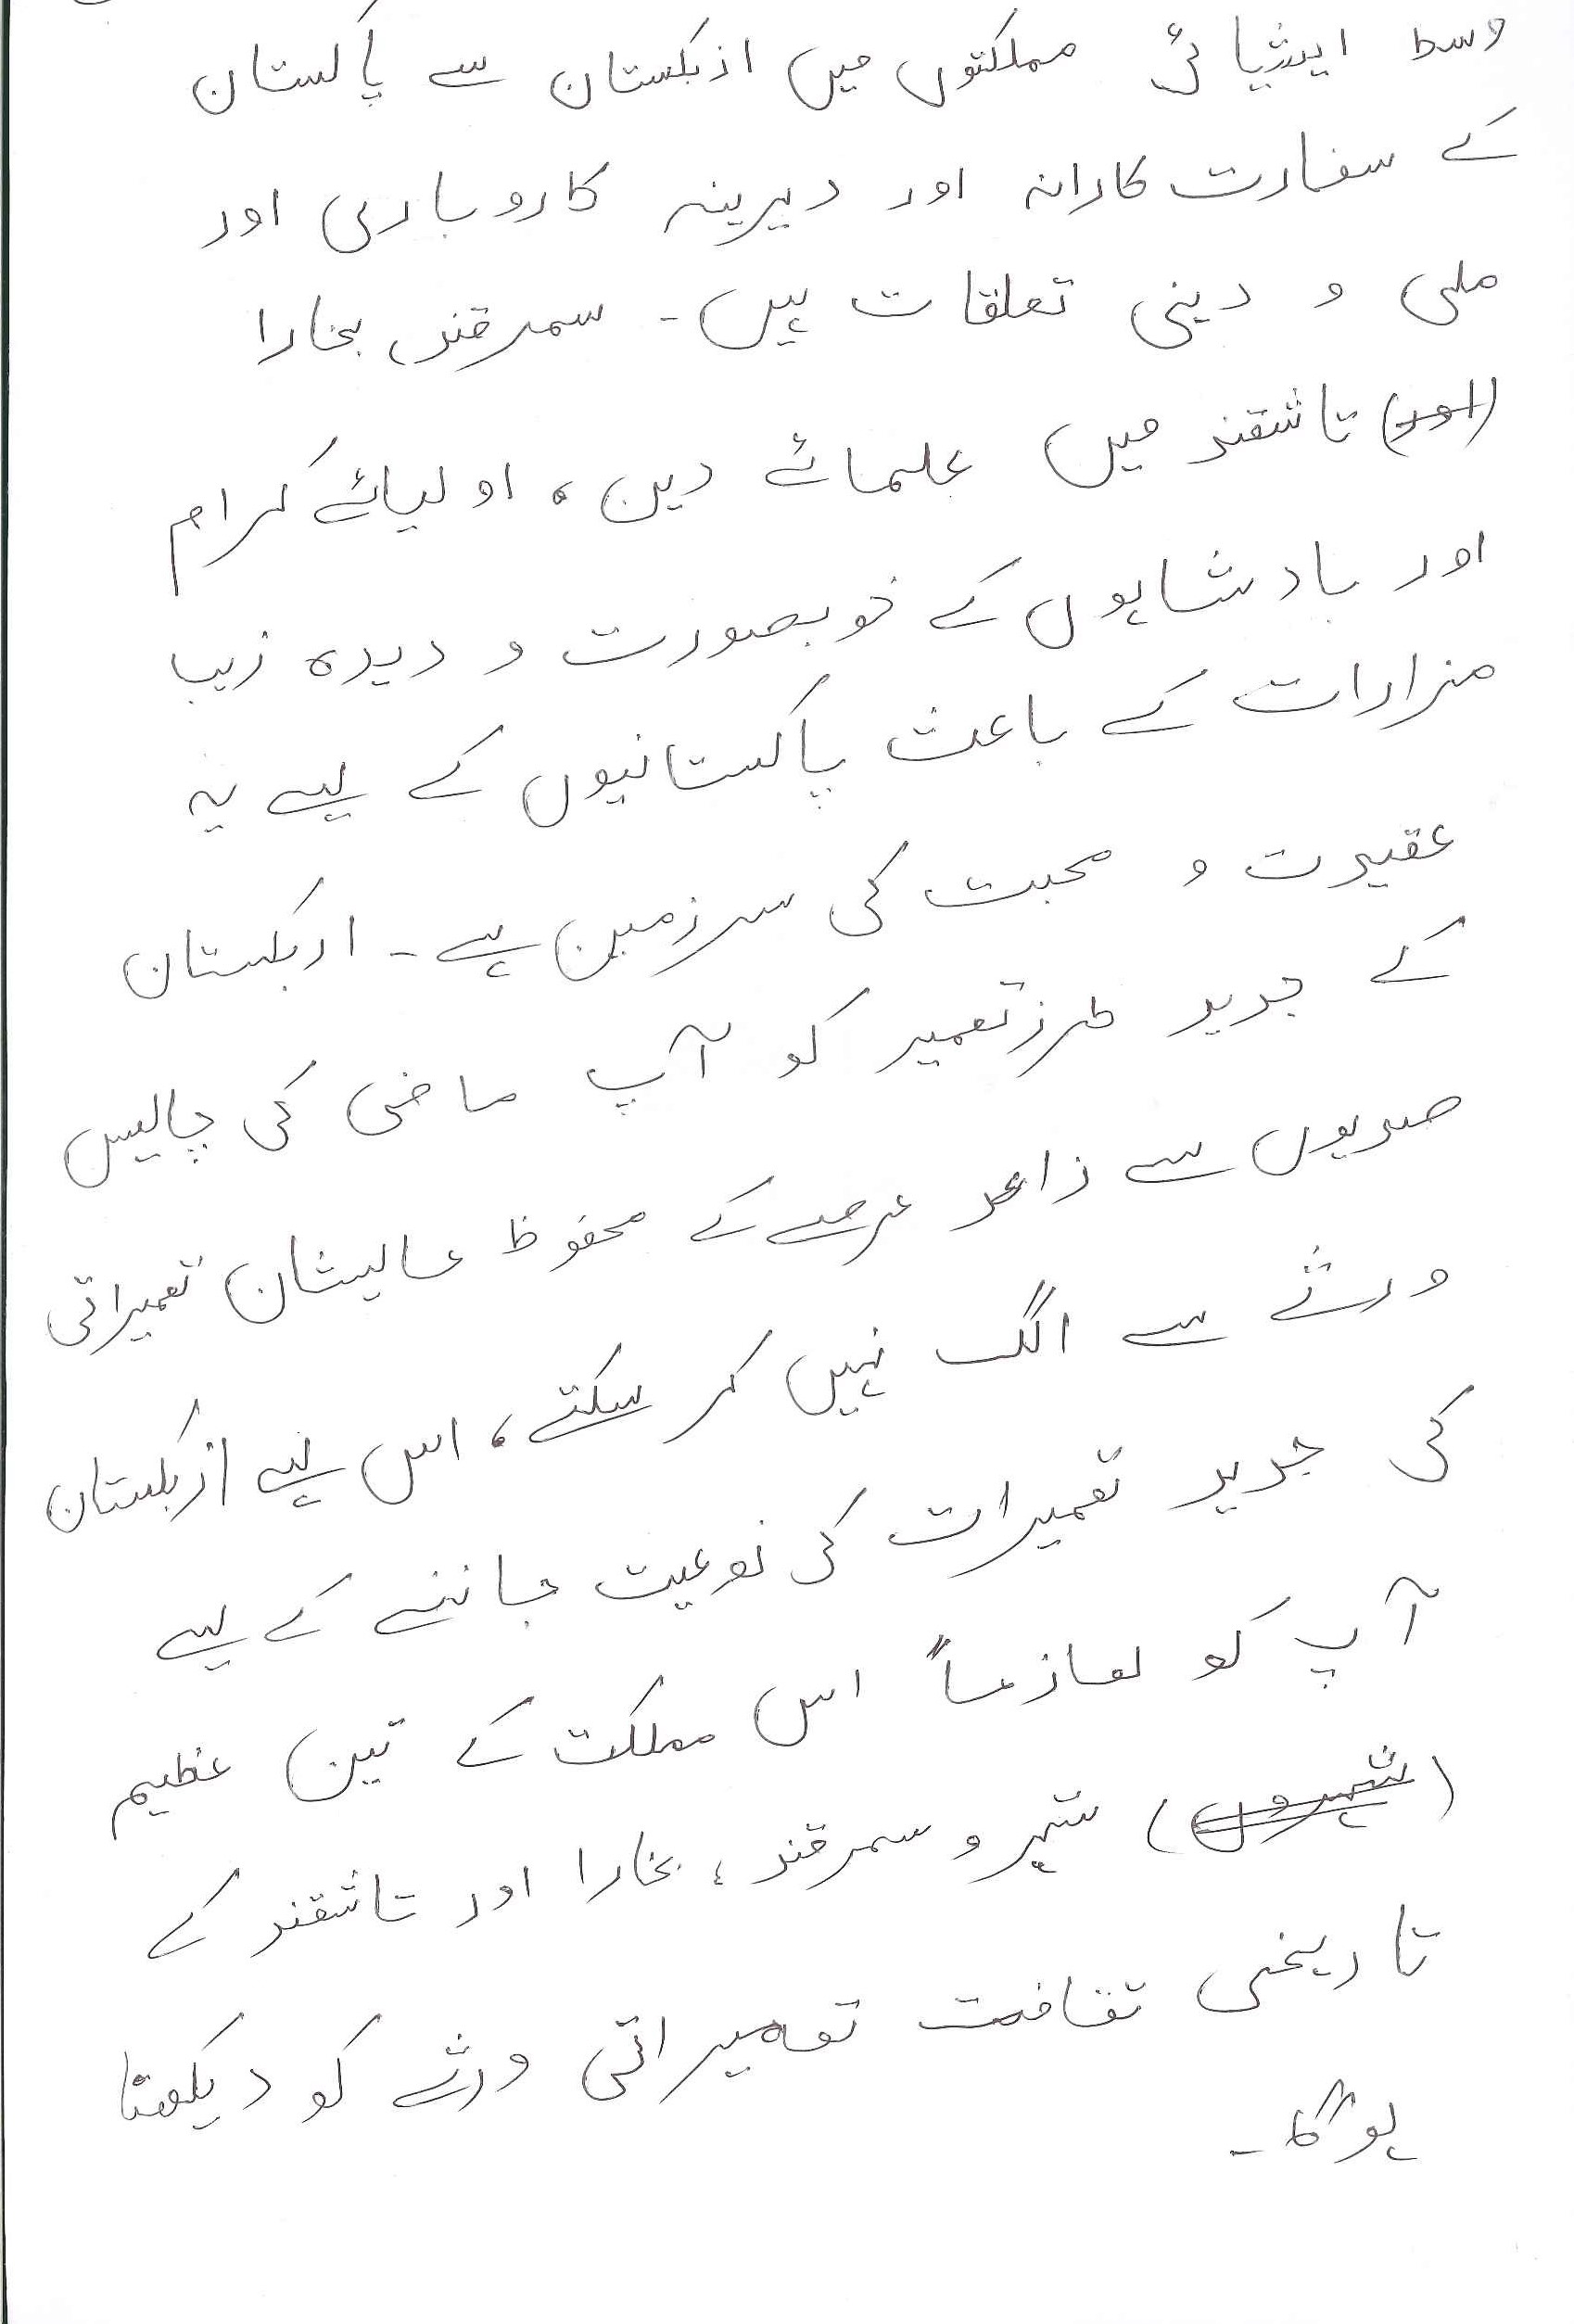 وسط ایشیائی مملکتوں میں ازبکستان سے پاکستان
کے سفارت کارانہ اور دیرینہ کاروباری اور
ملی و دینی تعلقات ہیں۔ سمرقند، بخارا
(اور) تاشقند میں علمائے دین، اولیائے کرام
اور بادشاہوں کے خوبصورت و دیدہ زیب
مزارات کے باعث پاکستانیوں کے لیے یہ
عقیدت و محبت کی سرزمین ہے۔ ازبکستان
کے جدید طرز تعمیر کو آپ ماضی کی چالیس
صدیوں سے زائد عرصے کے محفوظ عالیشان تعمیراتی
ورثے سے الگ نہیں کر سکتے، اس لیے ازبکستان
کی جدید تعمیرات کی نوعیت جاننے کے لیے
آپ کو لازماً اس مملکت کے تین عظیم
(شہروں) شہر و سمرقند، بخارا اور تاشقند کے
تاریخی ثقافت تعمیراتی ورثے کو دیکھنا
ہوگا۔